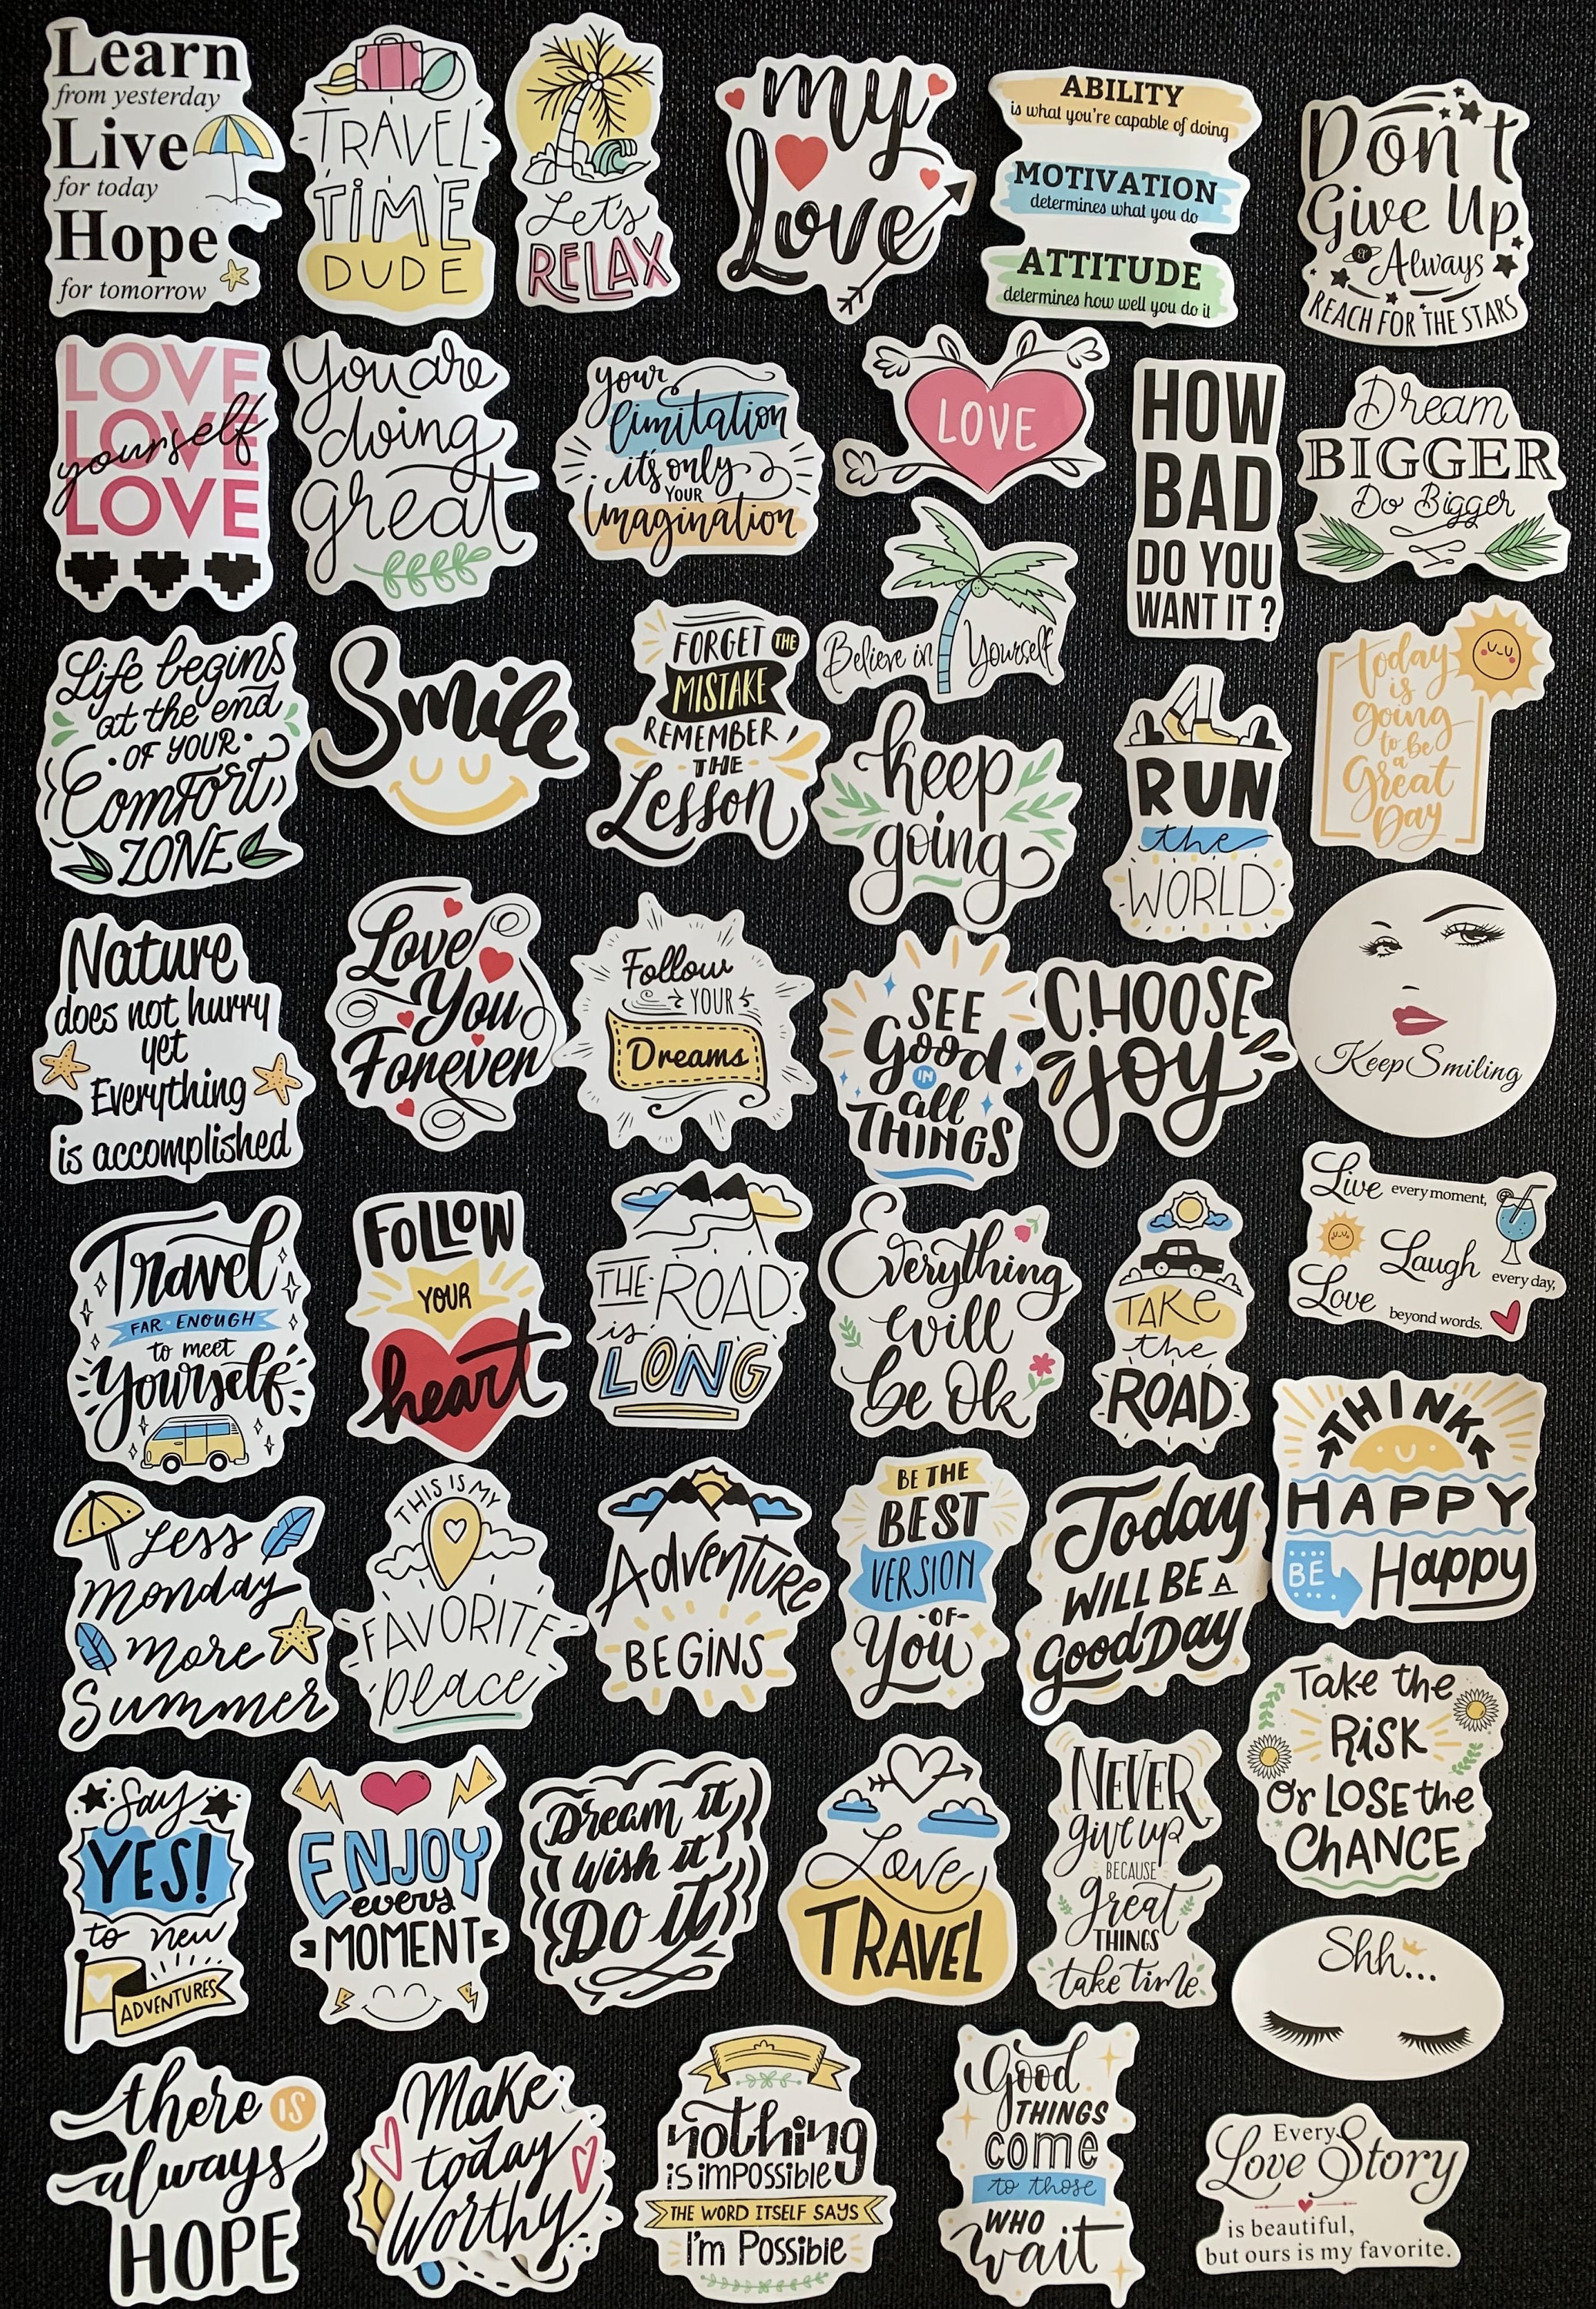 Learn
from yesterday
Live
for today
Hope
for tomorrow
TRAVEL
TIME
DUDE
Let's
RELAX
my
Love
ABILITY
is what you're capable of doing
MOTIVATION
determines what you do
ATTITUDE
determines how well you do it
Don't
Give Up
& Always
REACH FOR THE STARS
LOVE
LOVE
yourself
LOVE
You are
doing
great
your
limitation
it's only
YOUR
imagination
LOVE
HOW
BAD
DO YOU
WANT IT ?
Dream
BIGGER
Do Bigger
Believe in Yourself
Life begins
at the end
OF YOUR
COMFORT
ZONE
Smile
FORGET THE
MISTAKE
REMEMBER
THE
Lesson
keep
going
RUN
the
WORLD
today
is
going
to be
a
Great
Day
Nature
does not hurry
yet
Everything
is accomplished
Love
You
Forever
Follow
YOUR
Dreams
SEE
Good
IN
all
THINGS
CHOOSE
joy
Keep Smiling
Travel
FAR ENOUGH
to meet
Yourself
FOLLOW
YOUR
heart
THE ROAD
is
LONG
Everything
will
be Ok
TAKE
the
ROAD
Live every moment,
Laugh every day,
Love beyond words.
THINK
HAPPY
BE Happy
Less
Monday
More
Summer
THIS IS MY
FAVORITE
place
Adventure
BEGINS
BE THE
BEST
VERSION
OF
You
Today
WILL BE A
Good Day
Take the
RISK
Or LOSE the
CHANCE
Say
YES!
to new
ADVENTURES
ENJOY
every
MOMENT
Dream it
Wish it
Do it
Love
TRAVEL
NEVER
give up
BECAUSE
great
THINGS
take time
Shh...
there IS
always
HOPE
Make
today
Worthy
nothing
IS IMPOSSIBLE
THE WORD ITSELF SAYS
I'm Possible
Good
THINGS
come
to those
WHO
wait
Every
Love Story
is beautiful,
but ours is my favorite.